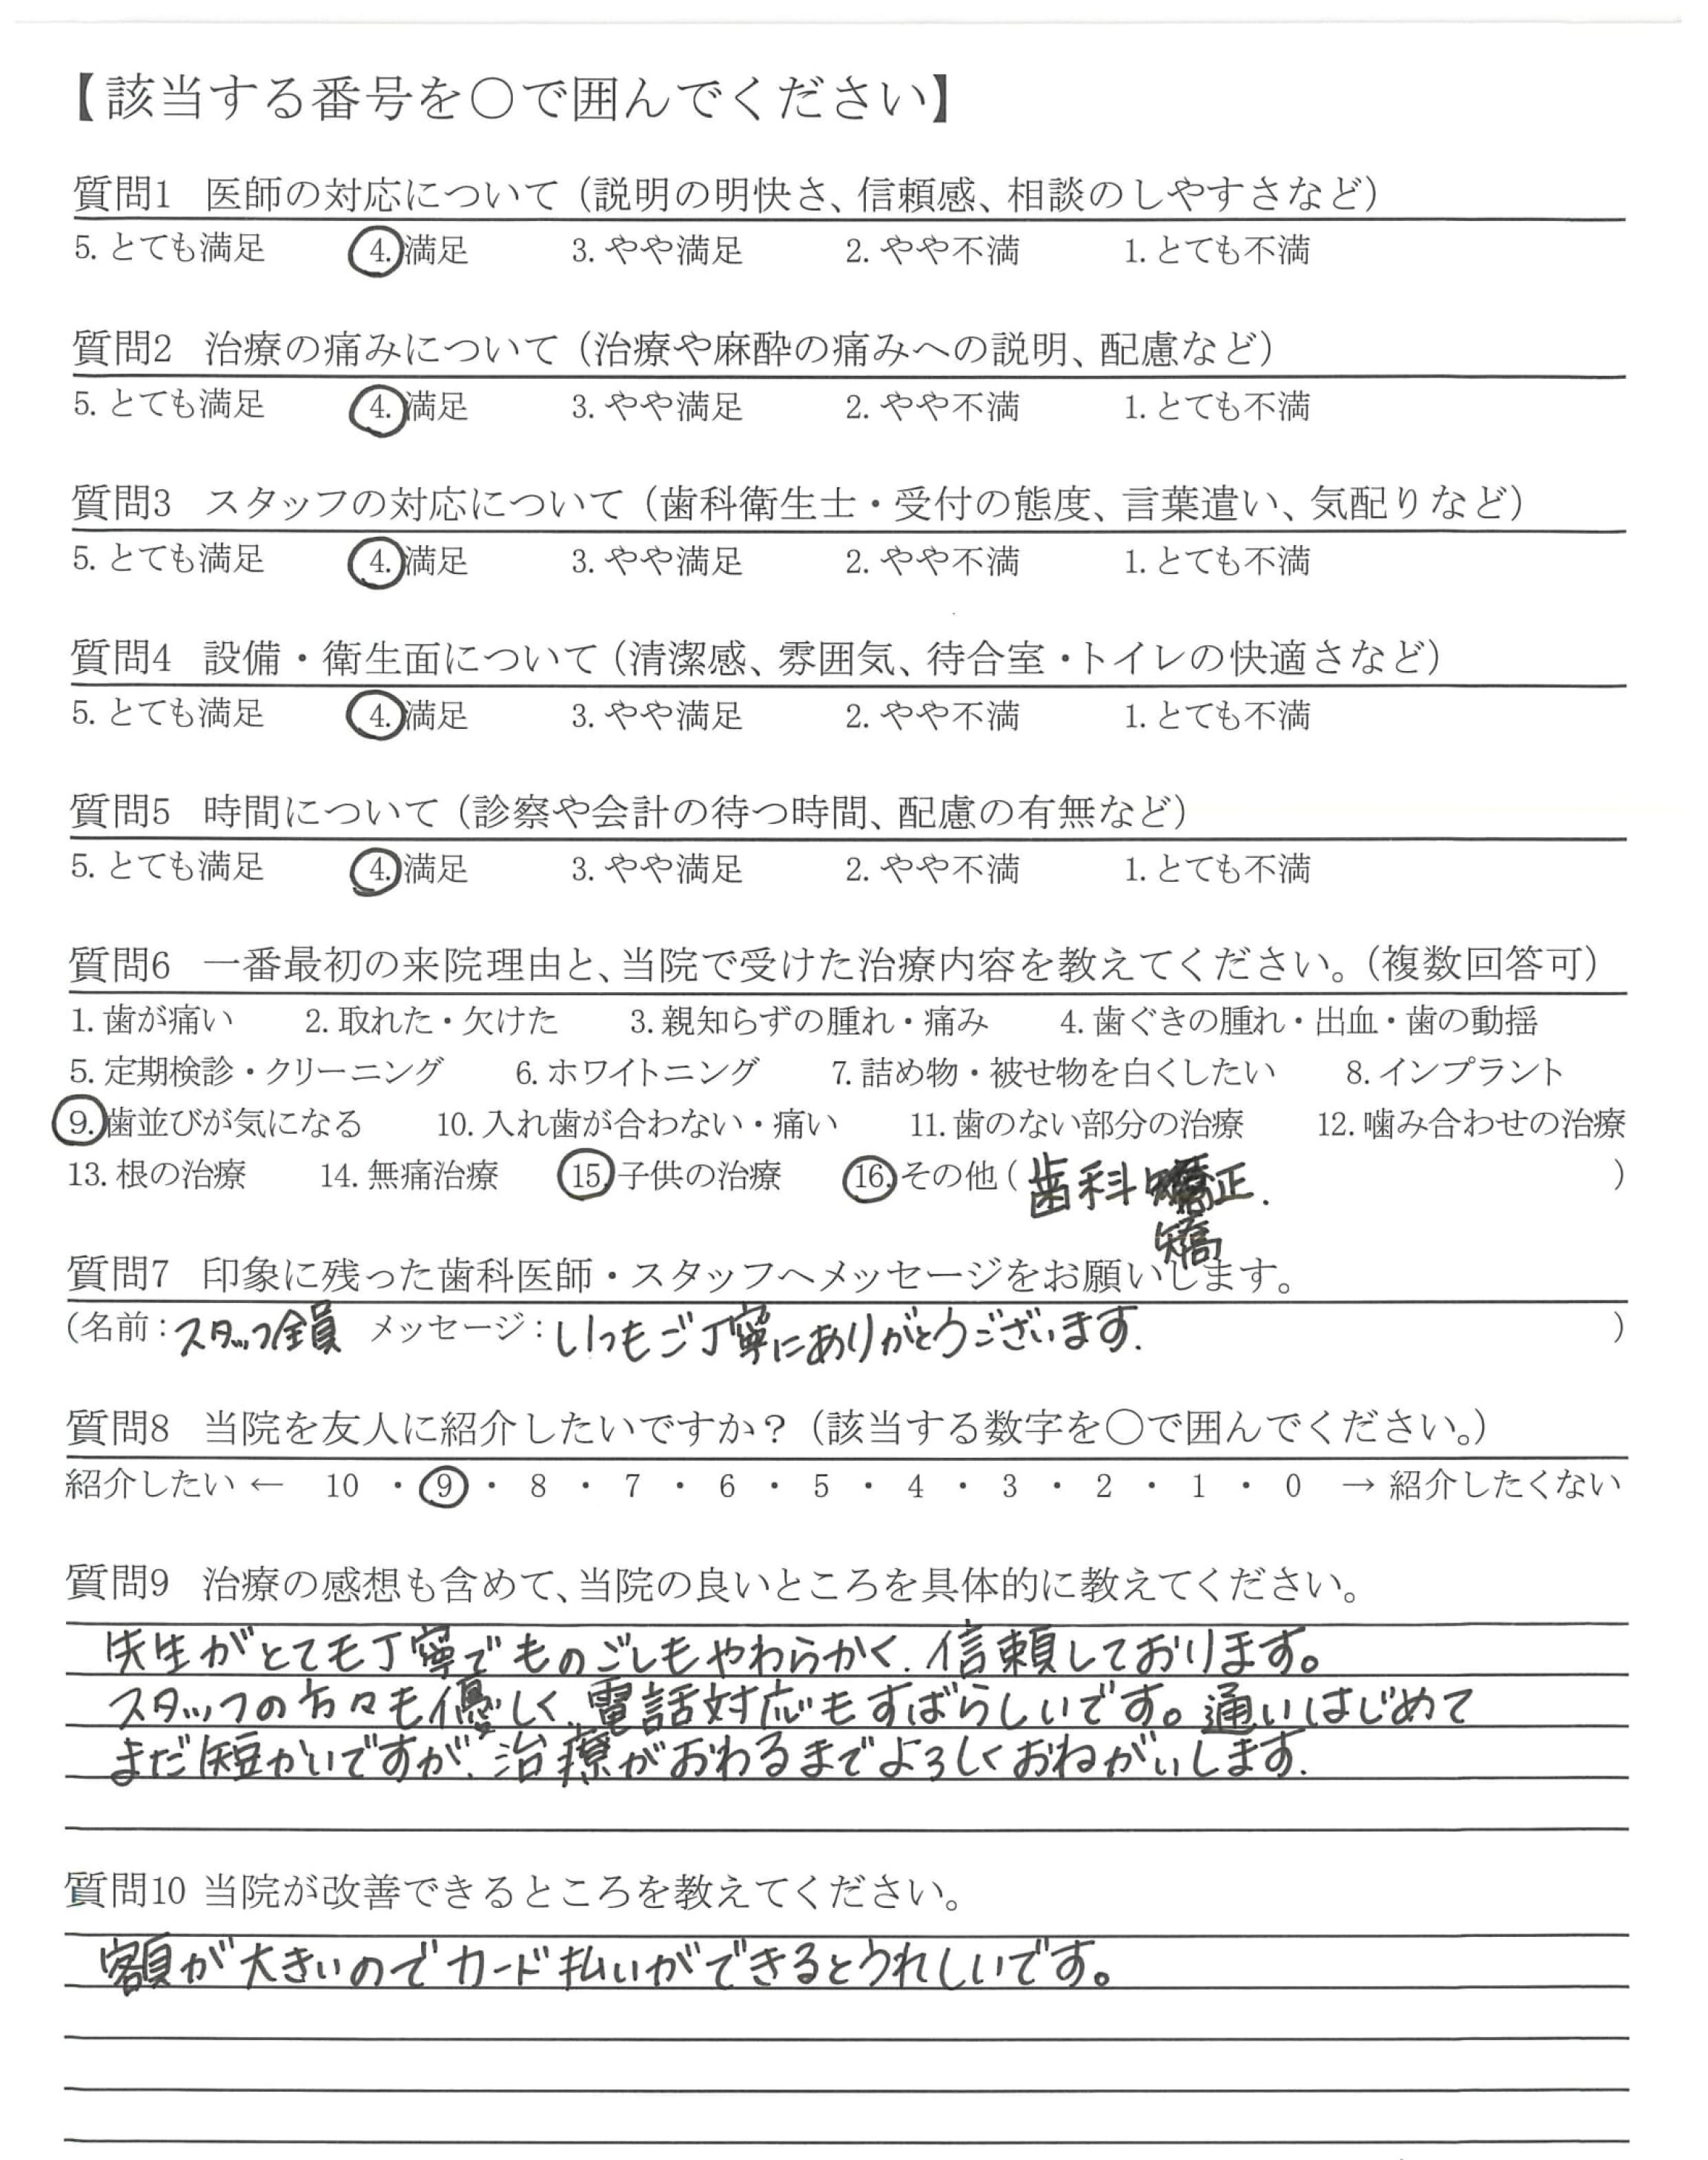 【該当する番号を○で囲んでください】
質問1 医師の対応について（説明の明快さ、信頼感、相談のしやすさなど）
5. とても満足 4. 満足 3. やや満足 2. やや不満 1. とても不満
質問2 治療の痛みについて（治療や麻酔の痛みへの説明、配慮など）
5. とても満足 4. 満足 3. やや満足 2. やや不満 1. とても不満
質問3 スタッフの対応について（歯科衛生士・受付の態度、言葉遣い、気配りなど）
5. とても満足 4. 満足 3. やや満足 2. やや不満 1. とても不満
質問4 設備・衛生面について（清潔感、雰囲気、待合室・トイレの快適さなど）
5. とても満足 4. 満足 3. やや満足 2. やや不満 1. とても不満
質問5 時間について（診察や会計の待つ時間、配慮の有無など）
5. とても満足 4. 満足 3. やや満足 2. やや不満 1. とても不満
質問6 一番最初の来院理由と、当院で受けた治療内容を教えてください。（複数回答可）
1. 歯が痛い 2. 取れた・欠けた 3. 親知らずの腫れ・痛み 4. 歯ぐきの腫れ・出血・歯の動揺
5. 定期検診・クリーニング 6. ホワイトニング 7. 詰め物・被せ物を白くしたい 8. インプラント
9. 歯並びが気になる 10. 入れ歯が合わない・痛い 11. 歯のない部分の治療 12. 噛み合わせの治療
13. 根の治療 14. 無痛治療 15. 子供の治療 16. その他（歯科矯正. ）
矯
質問7 印象に残った歯科医師・スタッフへメッセージをお願いします。
（名前：スタッフ全員 メッセージ：いつもご丁寧にありがとうございます. ）
質問8 当院を友人に紹介したいですか？（該当する数字を○で囲んでください。）
紹介したい ← 10 ・ 9 ・ 8 ・ 7 ・ 6 ・ 5 ・ 4 ・ 3 ・ 2 ・ 1 ・ 0 → 紹介したくない
質問9 治療の感想も含めて、当院の良いところを具体的に教えてください。
先生がとても丁寧でものごしもやわらかく、信頼しております。
スタッフの方々も優しく、電話対応もすばらしいです。通いはじめて
まだ短かいですが、治療がおわるまでよろしくおねがいします.
質問10 当院が改善できるところを教えてください。
額が大きいのでカード払いができるとうれしいです。